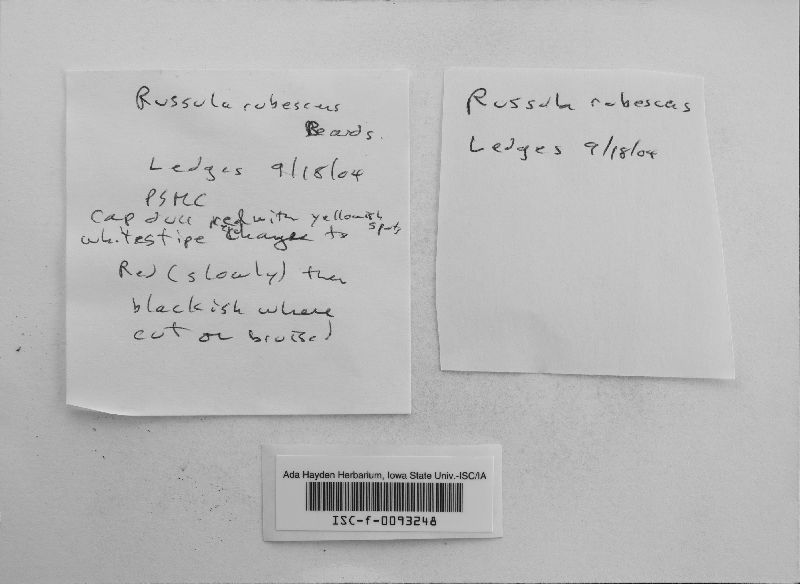 Russula rubescens
Beards.
Ledges 9/18/04
PSMC
Cap dull red with yellowish spots
white stipe changes to
Red (slowly) then
blackish where
cut or bruised
Russula rubescens
Ledges 9/18/04
Ada Hayden Herbarium, Iowa State Univ.-ISC/IA
ISC-f-0093248